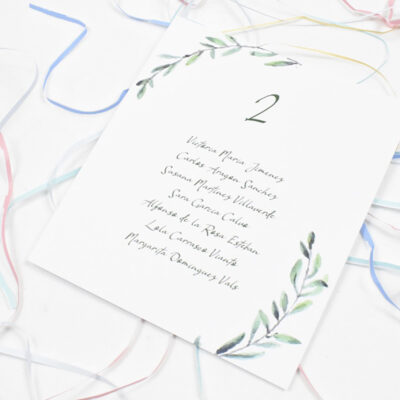 2
Victoria Maria Jimenes
Carlos Aragon Sanches
Susana Martines Villaverde
Sara Garcia Calvo
Alfonso de la Rosa Esteban
Lola Carrasco Vianto
Margarita Domingues Vals